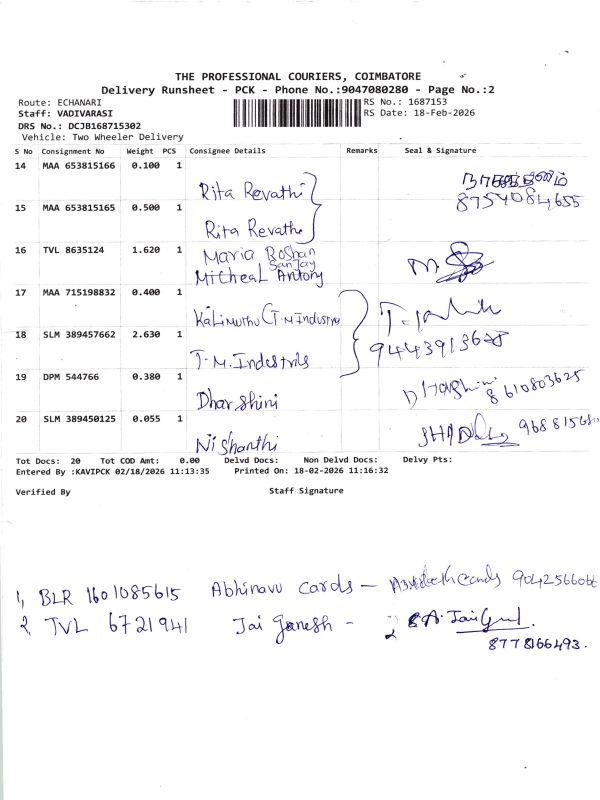 THE PROFESSIONAL COURIERS, COIMBATORE
Delivery Runsheet - PCK - Phone No.:9047080280 - Page No.:2
Route: ECHANARI
Staff: VADIVARASI
DRS No.: DCJB168715302
Vehicle: Two Wheeler Delivery
RS No.: 1687153
RS Date: 18-Feb-2026
S No Consignment No Weight PCS Consignee Details Remarks Seal & Signature
14 MAA 653815166 0.100 1
Rita Revathi
8754084655
15 MAA 653815165 0.500 1
Rita Revathi
16 TVL 8635124 1.620 1
Maria Roshan
Sanjay
Micheal Antony
17 MAA 715198832 0.400 1
Kalimuthu (T-M Industry
18 SLM 389457662 2.630 1
9443913628
T-M. Industrils
19 DPM 544766 0.380 1
Dharshini
Dharshini 8610803625
20 SLM 389450125 0.055 1
Nishanthi
Tot Docs: 20 Tot COD Amt: 0.00 Delvd Docs: Non Delvd Docs: Delvy Pts:
Entered By :KAVIPCK 02/18/2026 11:13:35 Printed On: 18-02-2026 11:16:32
Verified By Staff Signature
1, BLR 1601085615 Abhinavu cards -
2, TVL 6721941 Jai Ganesh -
8778166493.